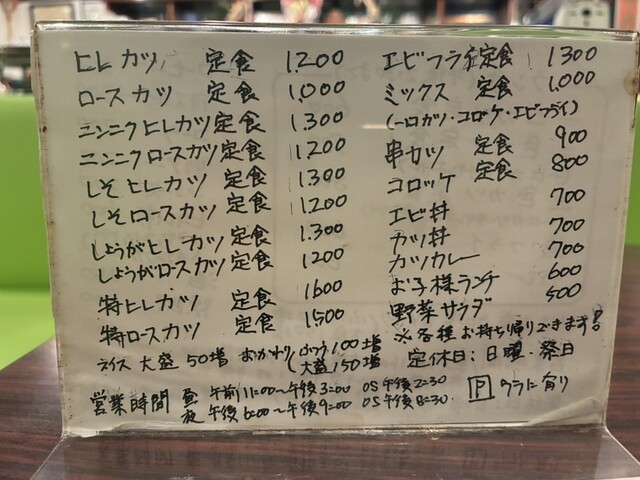 ヒレカツ 定食 1.200
ロースカツ 定食 1.000
ニンニクヒレカツ定食 1.300
ニンニクロースカツ定食 1.200
しそヒレカツ 定食 1.300
しそロースカツ 定食 1.200
しょうがヒレカツ 定食 1.300
しょうがロースカツ 定食 1200
特ヒレカツ 定食 1600
特ロースカツ 定食 1.500
ライス 大盛 50増 おかわり(ふつう100増
大盛150増
営業時間 昼 午前11:00〜午後3:00 OS午後2:30
夜 午後6:00〜午後9:00 OS午後8:30
エビフライ定食 1300
ミックス 定食 1.000
(一口カツ・コロケ・エビフライ)
串カツ 定食 900
コロッケ 定食 800
エビ丼 700
カツ丼 700
カツカレー 700
お子様ランチ 600
野菜サラダ 500
※各種お持ち帰りできます!!
定休日:日曜・祭日
P ウラに有り